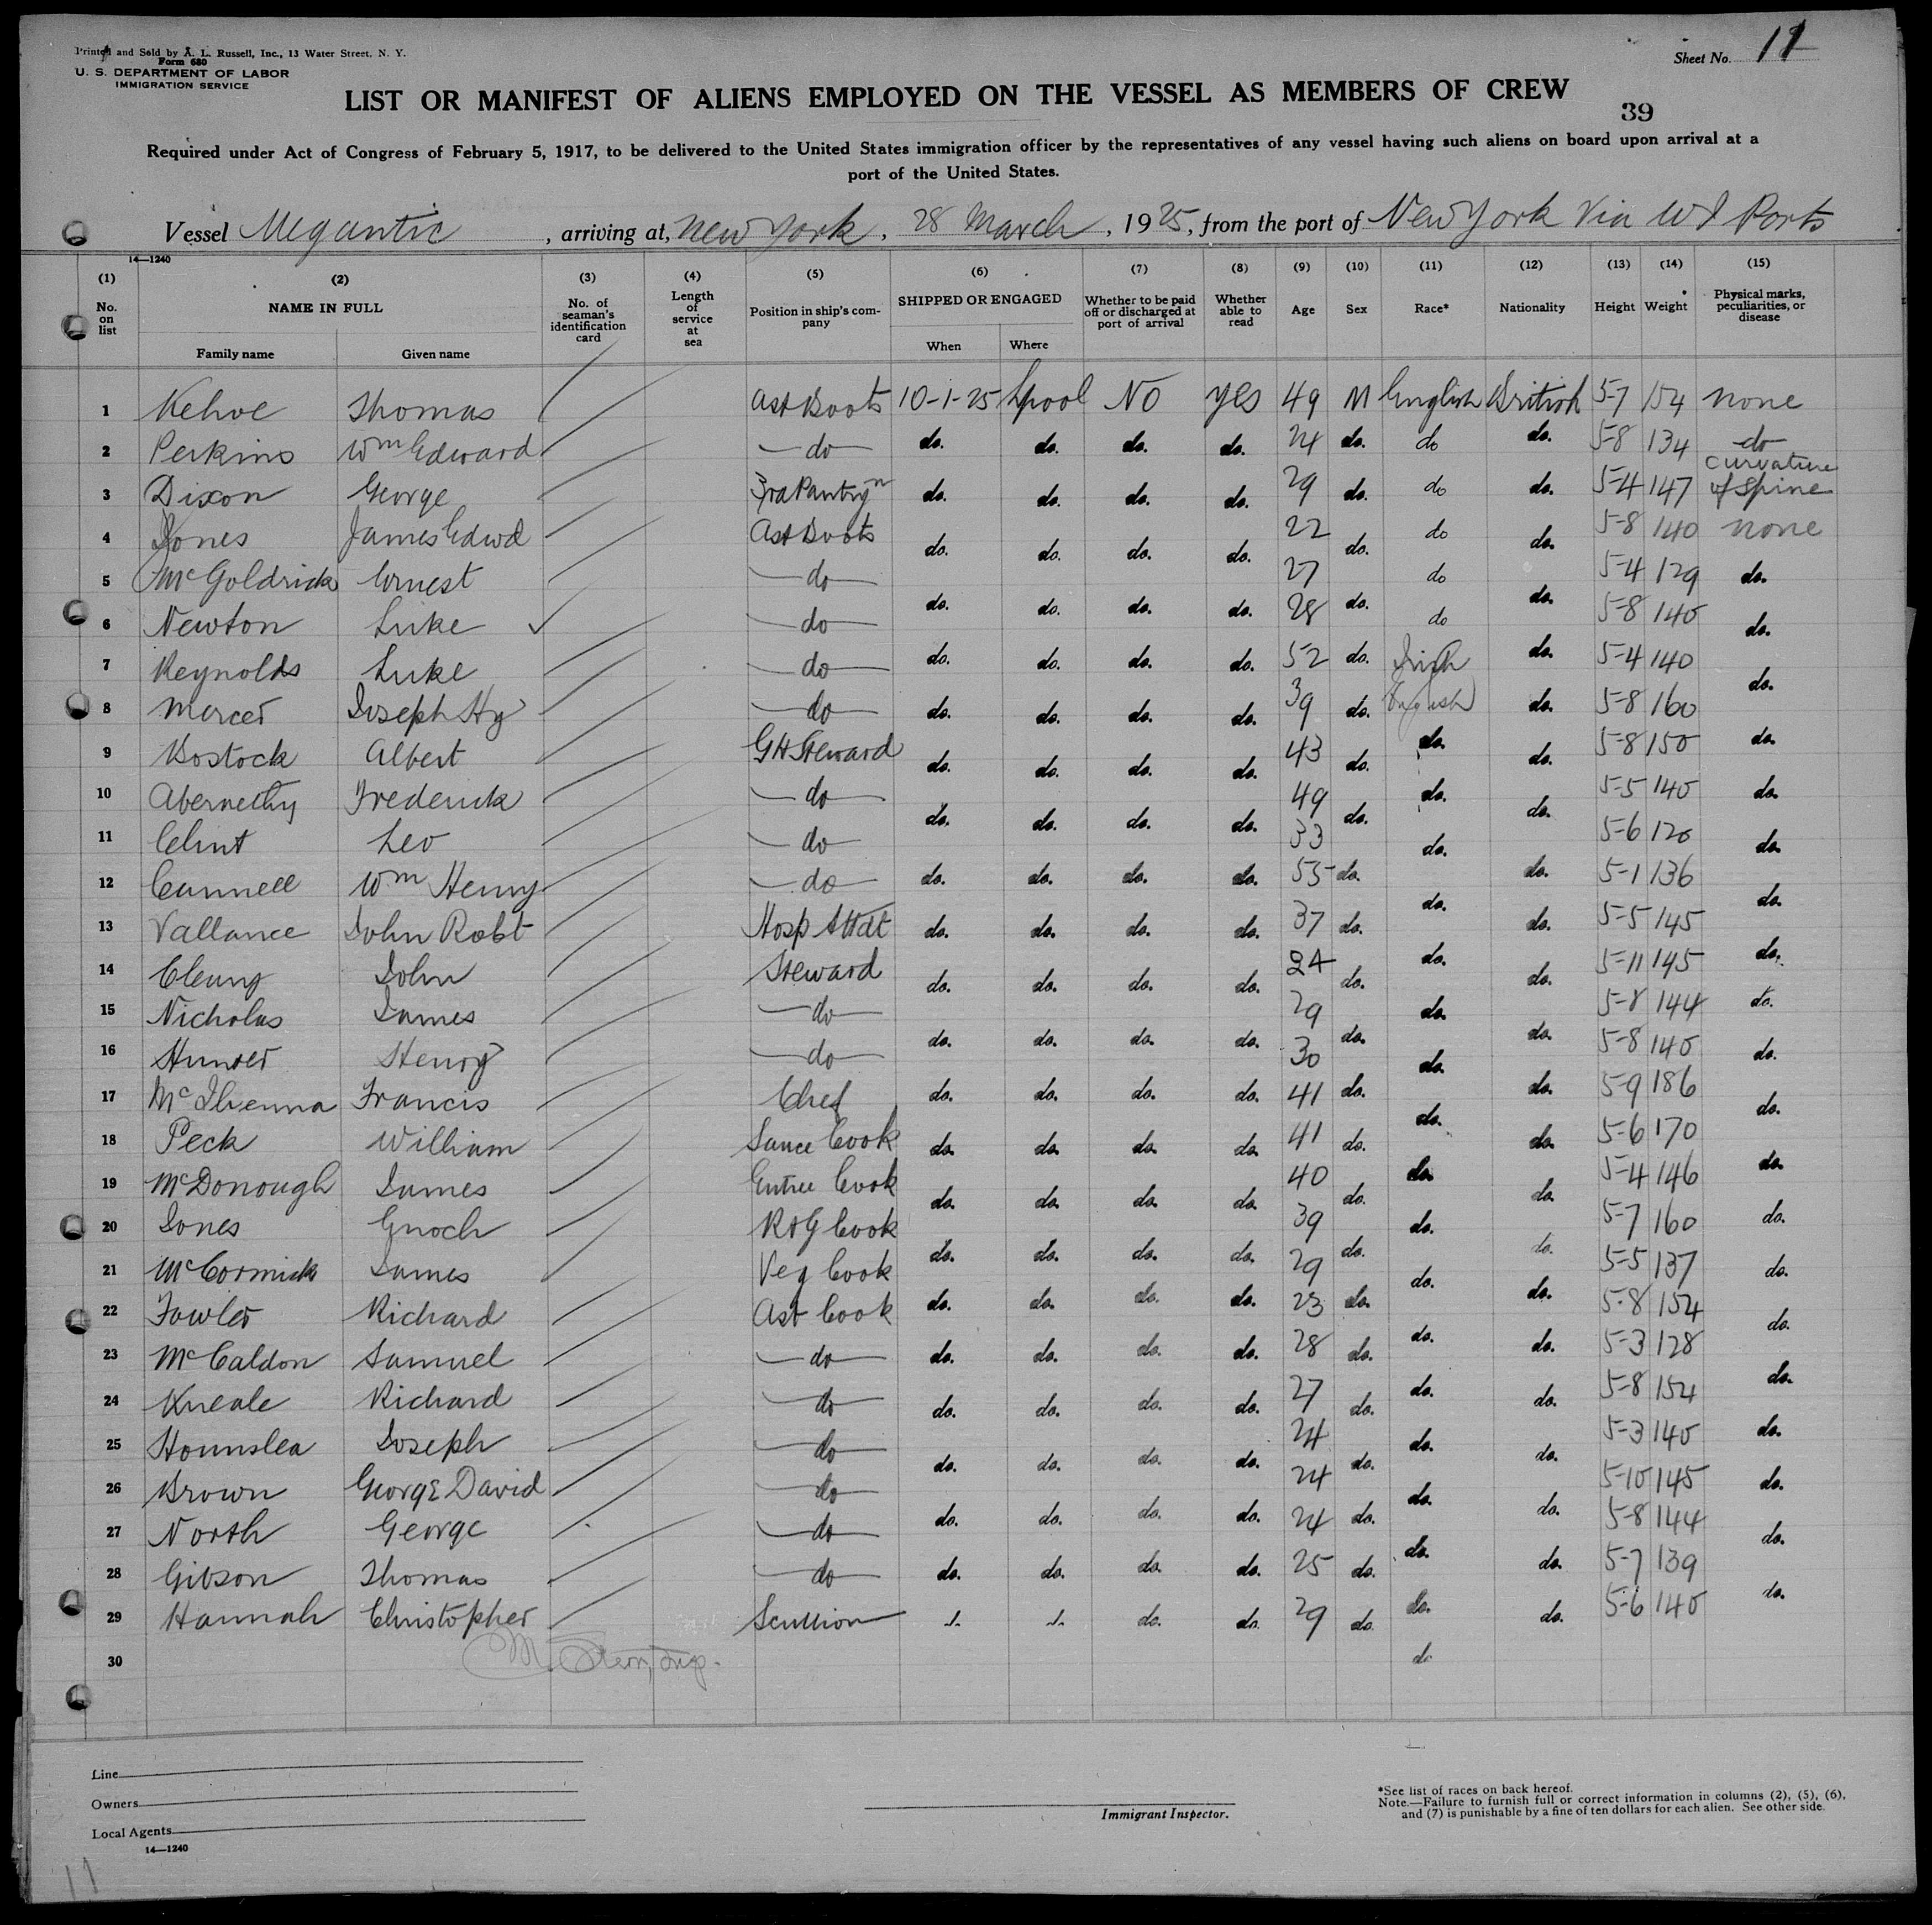 Printed and Sold by A. L. Russell, Inc., 13 Water Street, N. Y.
Form 680
U. S. DEPARTMENT OF LABOR
IMMIGRATION SERVICE
Sheet No. 11
LIST OR MANIFEST OF ALIENS EMPLOYED ON THE VESSEL AS MEMBERS OF CREW
39
Required under Act of Congress of February 5, 1917, to be delivered to the United States immigration officer by the representatives of any vessel having such aliens on board upon arrival at a
port of the United States.
Vessel Megantic, arriving at, New York, 28 March, 1925, from the port of New York Via W I Ports
14—1240
(1) (2) (3) (4) (5) (6) (7) (8) (9) (10) (11) (12) (13) (14) (15)
No. on list NAME IN FULL Family name Given name No. of seaman's identification card Length of service at sea Position in ship's company SHIPPED OR ENGAGED When Where Whether to be paid off or discharged at port of arrival Whether able to read Age Sex Race* Nationality Height Weight Physical marks, peculiarities, or disease
1 Kehoe Thomas Ast Boots 10-1-25 Lpool No yes 49 M English British 5-7 154 none
2 Perkins Wm Edward do do. do. do. do. 24 do. do do. 5-8 134 do
3 Dixon George 3rd Pantryn do. do. do. do. 29 do. do do. 5-4 147 curvature of spine
4 Jones James Edwd Ast Boots do. do. do. do. 22 do. do do. 5-8 140 none
5 McGoldrick Ernest do do. do. do. do. 27 do. do do. 5-4 129 do.
6 Newton Luke do do. do. do. do. 28 do. do do. 5-8 140 do.
7 Reynolds Luke do do. do. do. do. 52 do. Irish do. 5-4 140 do.
8 Mercer Joseph Hy do do. do. do. do. 39 do. English do. 5-8 160 do.
9 Bostock Albert GH Steward do. do. do. do. 43 do. do. do. 5-8 150 do.
10 Abernethy Frederick do do. do. do. do. 49 do. do. do. 5-5 140 do.
11 Clint Leo do 33 do. 5-6 120 do.
12 Cannell Wm Henry do do. do. do. do. 55 do. do. do. 5-1 136 do.
13 Vallance John Robt Hosp Attdt do. do. do. do. 37 do. do. do. 5-5 145 do.
14 Cleary John Steward do. do. do. do. 24 do. do. 5-11 145 do.
15 Nicholas James do 29 do. 5-8 144 do.
16 Hunter Henry do do. do. do. do. 30 do. do. do. 5-8 140 do.
17 McIlhenna Francis Chef do. do. do. do. 41 do. do. do. 5-9 186 do.
18 Peck William Sauce Cook do. do. do. do. 41 do. do. 5-6 170 do.
19 McDonough James Entree Cook do. do. do. do. 40 do. do. do. 5-4 146 do.
20 Jones Enoch R & G Cook do. do. do. do. 39 do. do. do. 5-7 160 do.
21 McCormick James Veg Cook 29 do. 5-5 137 do.
22 Fowler Richard Ast Cook do. do. do. do. 23 do. do. do. 5-8 154 do.
23 McCaldon Samuel do do. do. do. do. 28 do. do. 5-3 128 do.
24 Kneale Richard do do. do. do. do. 27 do. do. do. 5-8 154 do.
25 Hounslea Joseph do do. do. do. do. 24 do. do. do. 5-3 140 do.
26 Brown George David do 24 do. 5-10 145 do.
27 North George do do. do. do. do. 24 do. do. do. 5-8 144 do.
28 Gibson Thomas do do. do. do. do. 25 do. do. do. 5-7 139 do.
29 Hannah Christopher Scullion do. do. 29 do. do. do. 5-6 140
30 do
Line
Owners
Local Agents
14—1240
Immigrant Inspector.
*See list of races on back hereof.
Note.—Failure to furnish full or correct information in columns (2), (5), (6),
and (7) is punishable by a fine of ten dollars for each alien. See other side.
11